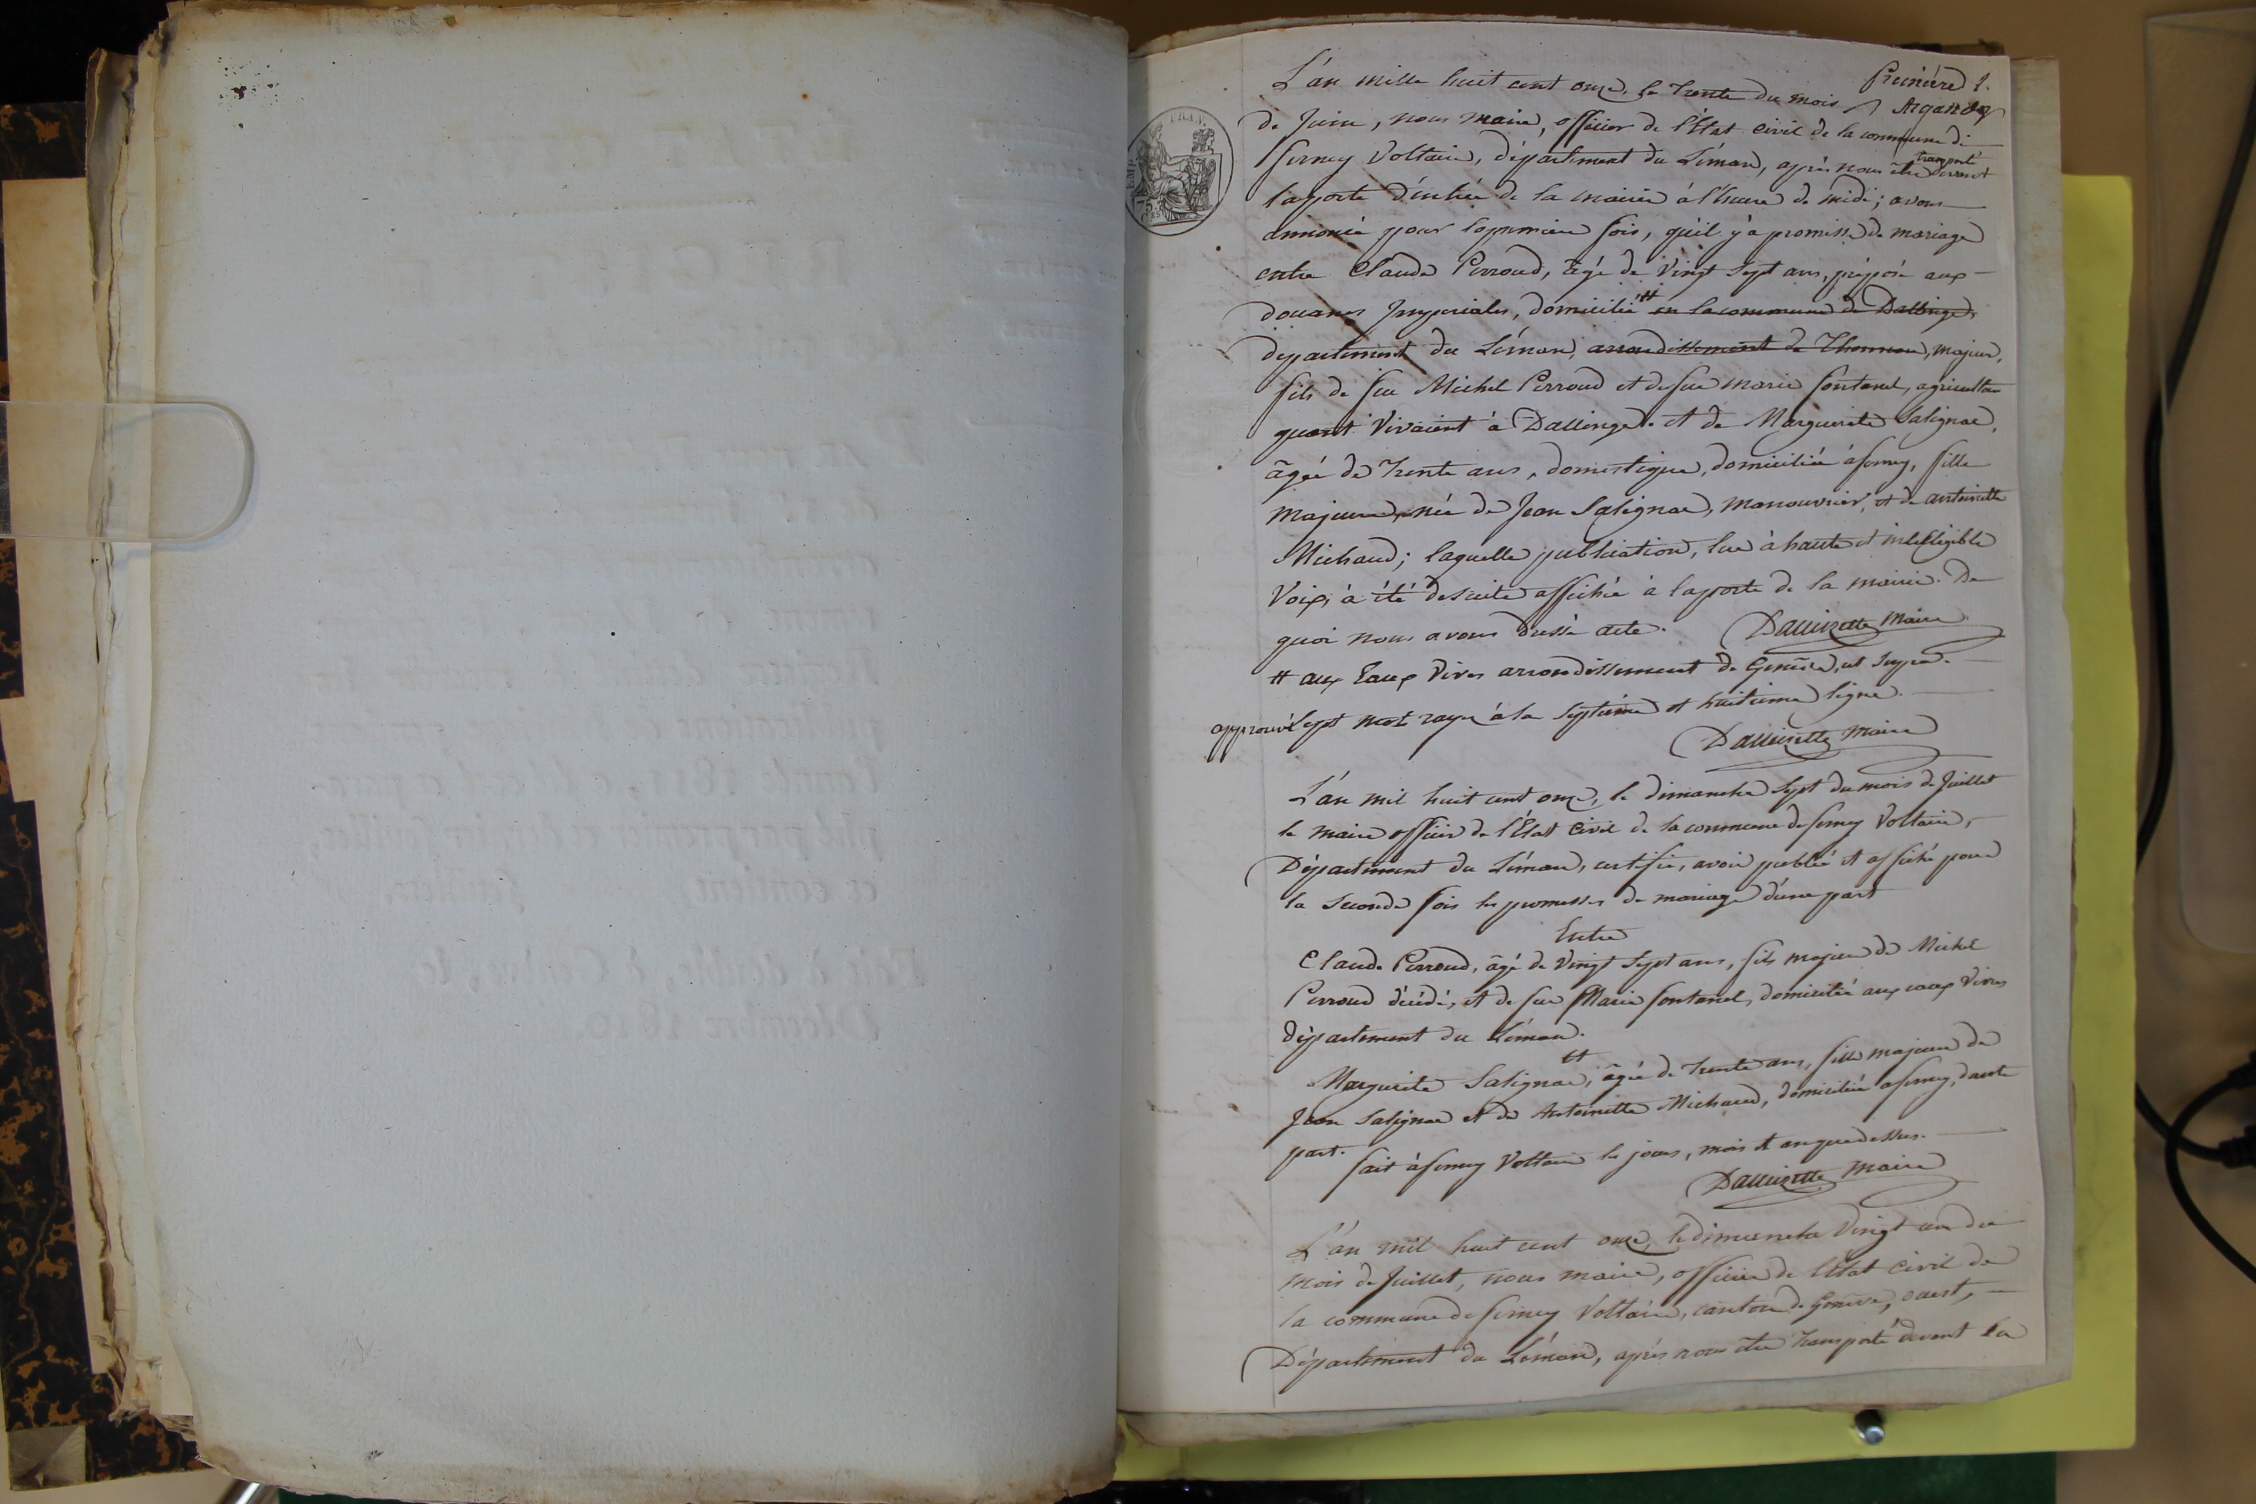 Première 1.
L'an mille huit cent onze, le Trente du mois
de Juin, nous Maire, officier de l'État civil de la commune de
ferney Voltaire, département du Léman, après nous être transporté devant
la porte d'entrée de la mairie à l'heure de midi; avons
annoncé pour la premiere fois, qu'il y'a promesse de mariage
entre Claude Perroud, âgé de Vingt Sept ans, préposé aux
douanes Imperiales, domicilié # en la commune de Dallinge,
département du Léman, arrondissement de Thonnon, majeur,
fils de feu Michel Perroud et de feue Marie fontanel, agriculteur
quand Vivaient à Dallinge. et de Marguerite Salignac,
âgée de Trente ans, domestique, domiciliée à ferney, fille
Majeure, née de Jean Salignac, manouvrier, et de antoinette
Michaud; laquelle publication, lue à haute et intelligible
Voix, à été desuite affichée à la porte de la mairie. De
quoi nous avons dressé acte. Dallizette Maire
# aux Eaux Vives arrondissement de Genève, ut supra.
approuvé Sept mot rayé à la Septième et huitieme ligne.
Dallizette Maire
L'an mil huit cent onze, le dimanche Sept du mois de Juillet
le maire officier de l'État Civil de la commune de ferney Voltaire,
Département du Léman, certifie, avoir publié et affiché pour
la Seconde fois les promesses de mariage d'une part
Entre
Claude Perroud, âgé de Vingt Sept ans, fils majeur de Michel
Perroud décédé, et de feue Marie fontanel, domicilié aux eaux Vives
département du Léman.
et
Marguerite Salignac, âgée de Trente ans, fille majeure de
Jean Salignac et de Antoinette Michaud, domiciliée à ferney, d'autre
part.
fait à ferney Voltaire les jour, mois et an que dessus.
Dallizette Maire
L'an mil huit cent onze, le dimanche Vingt un du
mois de Juillet, nous maire, officier de l'État Civil de
la commune de ferney Voltaire, canton de Genève, ouest,
Département du Léman, après nous être Transporté devant la